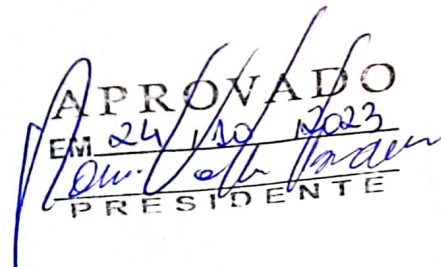 APROVADO
EM 24 / 10 / 2023
PRESIDENTE